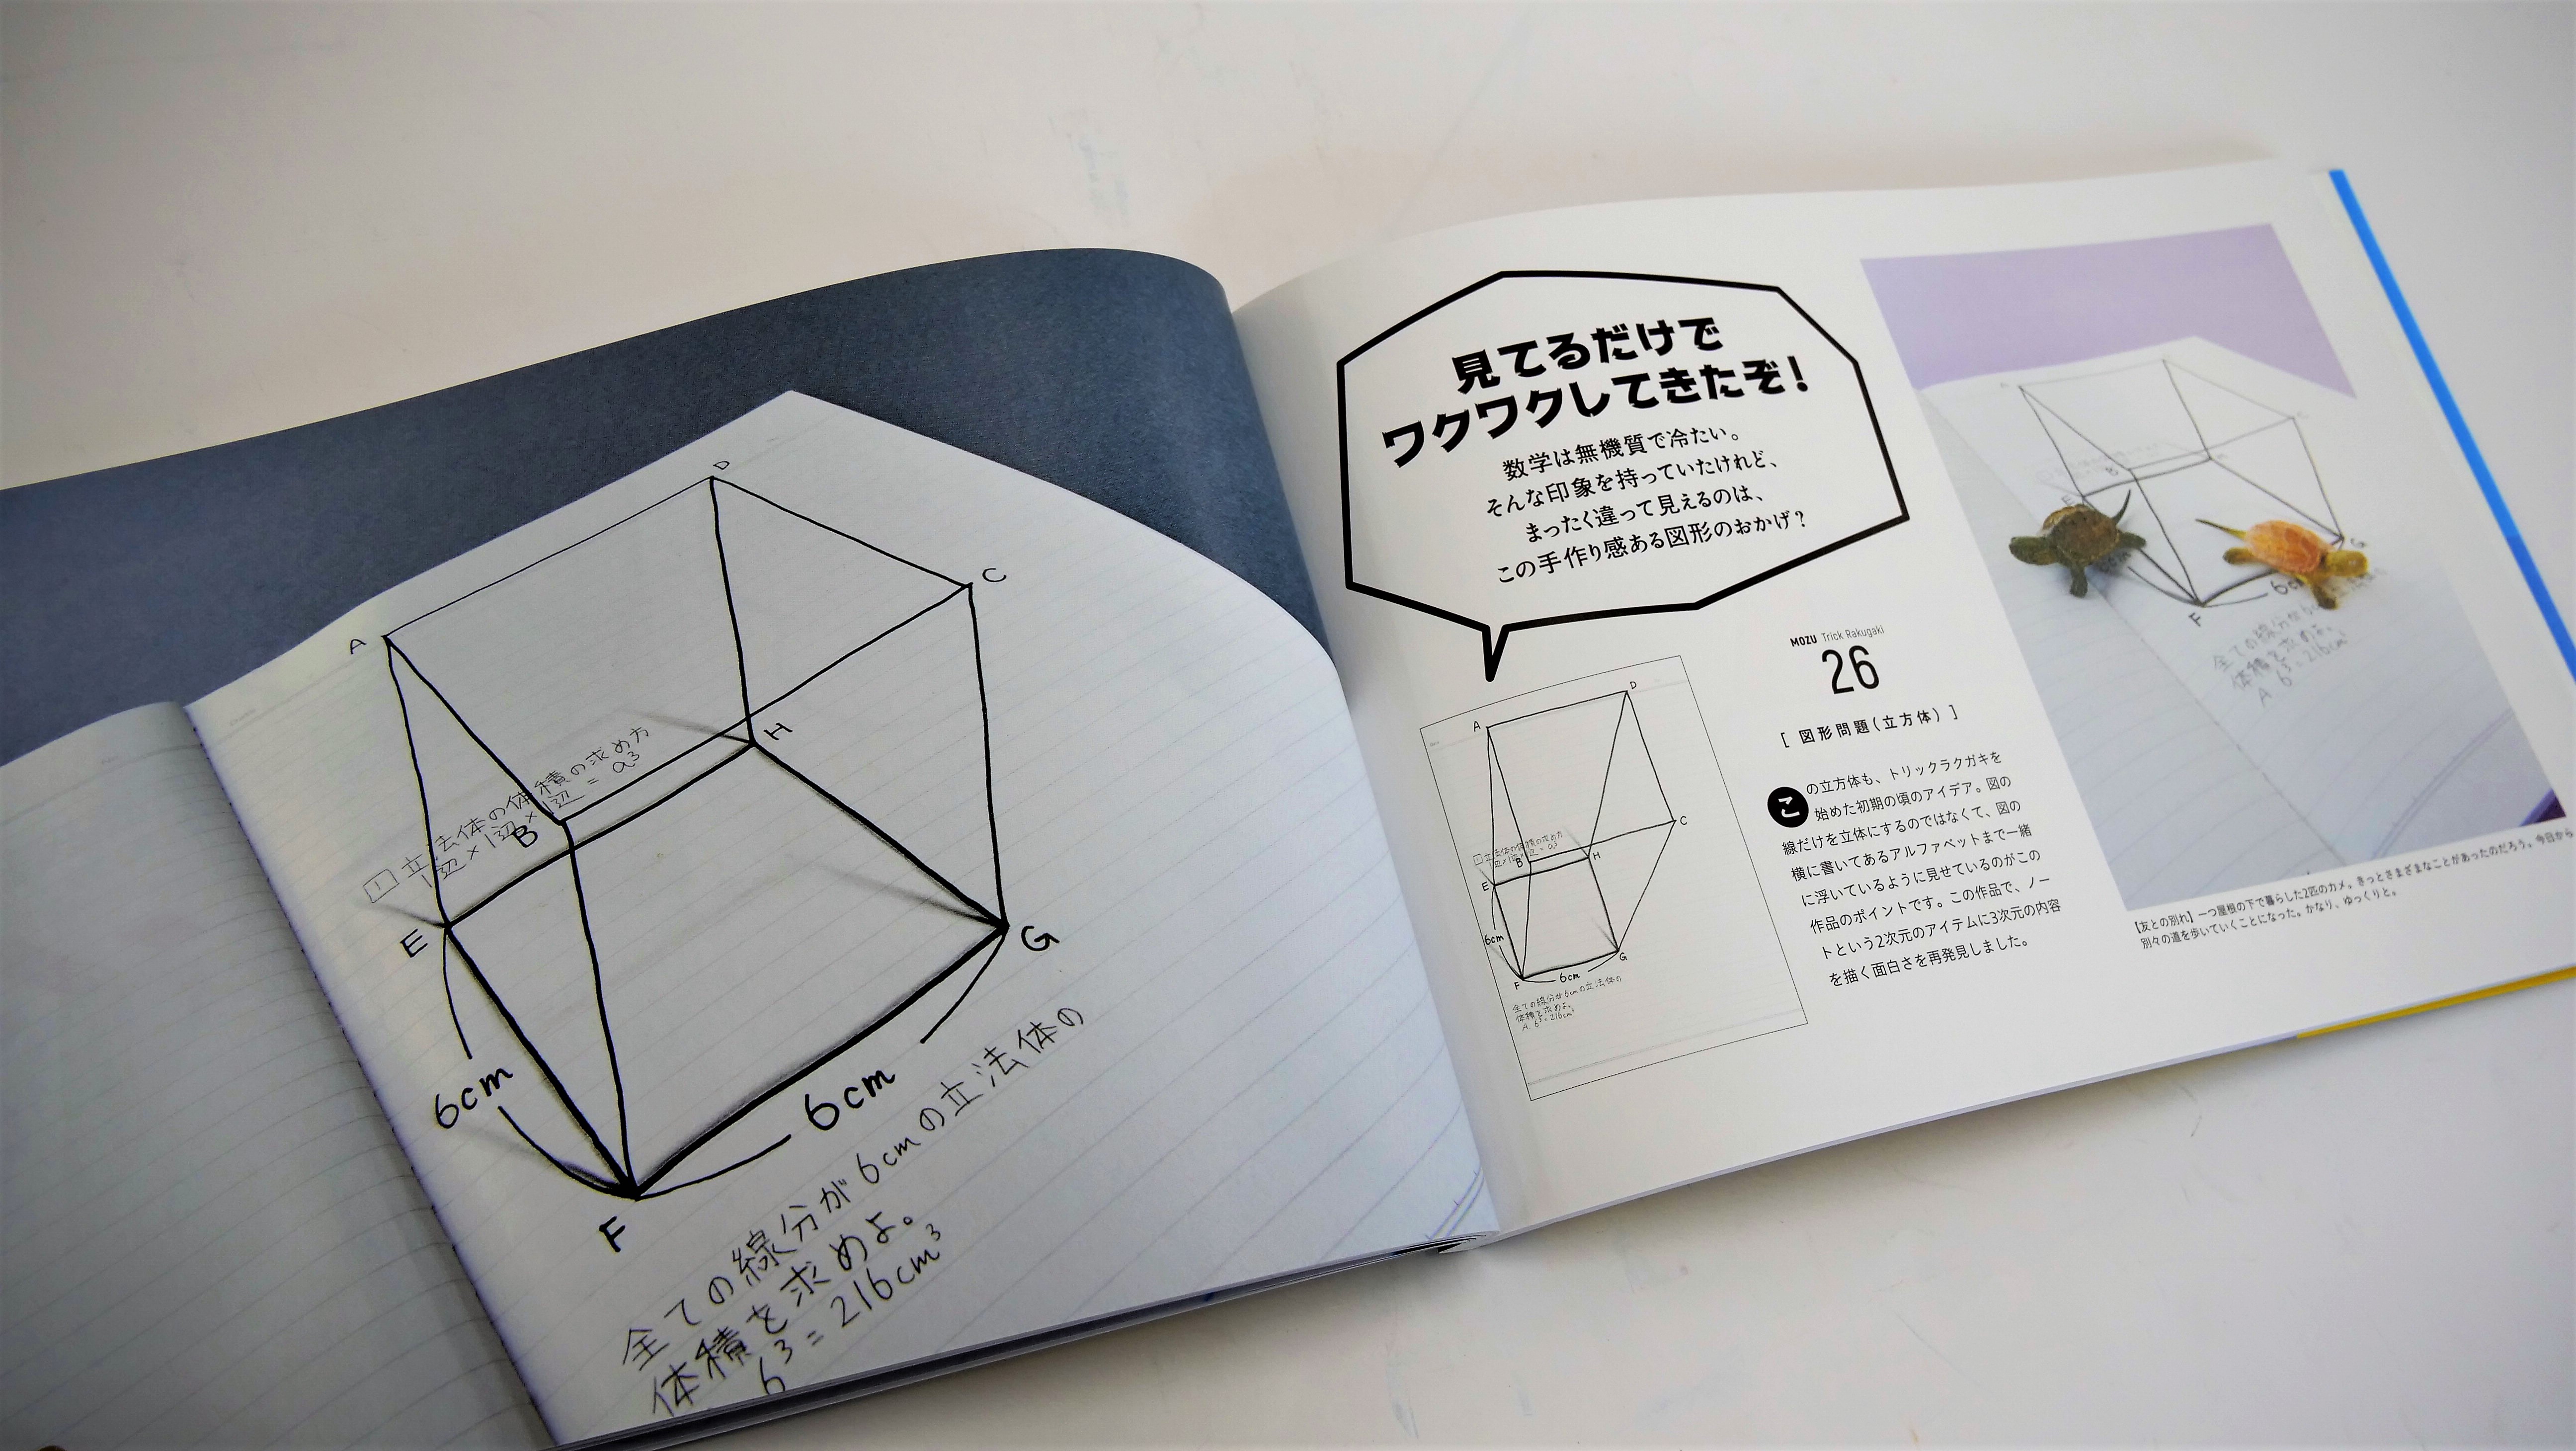 D
A
C
H
1 立法体の体積の求め方
1辺×1辺×1辺 = a³
B
E
G
6cm
6cm
F
全ての線分が6cmの立法体の
体積を求めよ。
6³=216cm³
見てるだけで
ワクワクしてきたぞ!
数学は無機質で冷たい。
そんな印象を持っていたけれど、
まったく違って見えるのは、
この手作り感ある図形のおかげ?
D
A
C
1 立法体の体積の求め方
1辺×1辺×1辺 = a³
B
H
E
6cm
G
6cm
F
全ての線分が6cmの立法体の
体積を求めよ。
A 6³=216cm³
MOZU Trick Rakugaki
26
[ 図形問題(立方体) ]
この立方体も、トリックラクガキを
始めた初期の頃のアイデア。図の
線だけを立体にするのではなくて、図の
横に書いてあるアルファベットまで一緒
に浮いているように見せているのがこの
作品のポイントです。この作品で、ノー
トという2次元のアイテムに3次元の内容
を描く面白さを再発見しました。
A
C
B
H
E
G
F
全ての線分が6
体積を求めよ。
A 6³=216cm³
【友との別れ】一つ屋根の下で暮らした2匹のカメ。きっとさまざまなことがあったのだろう。今日から
別々の道を歩いていくことになった。かなり、ゆっくりと。